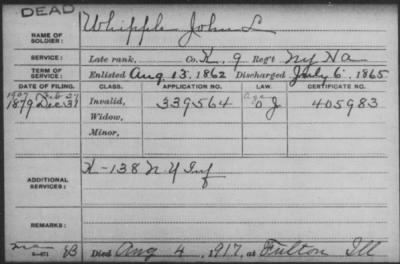 DEAD
NAME OF SOLDIER: Whipple John L
SERVICE: Late rank, Co. K 9 Reg't NY HA
TERM OF SERVICE: Enlisted Aug 13. 1862 Discharged July 6. 1865
DATE OF FILING. CLASS. APPLICATION NO. LAW. CERTIFICATE NO.
1907 Feb 27 Age
1879 Dec 31 Invalid, 339564 O J 405983
Widow,
Minor,
ADDITIONAL SERVICES: K-138 N Y Inf
REMARKS:
3-671 Died Aug 4, 1917, at Fulton Ill